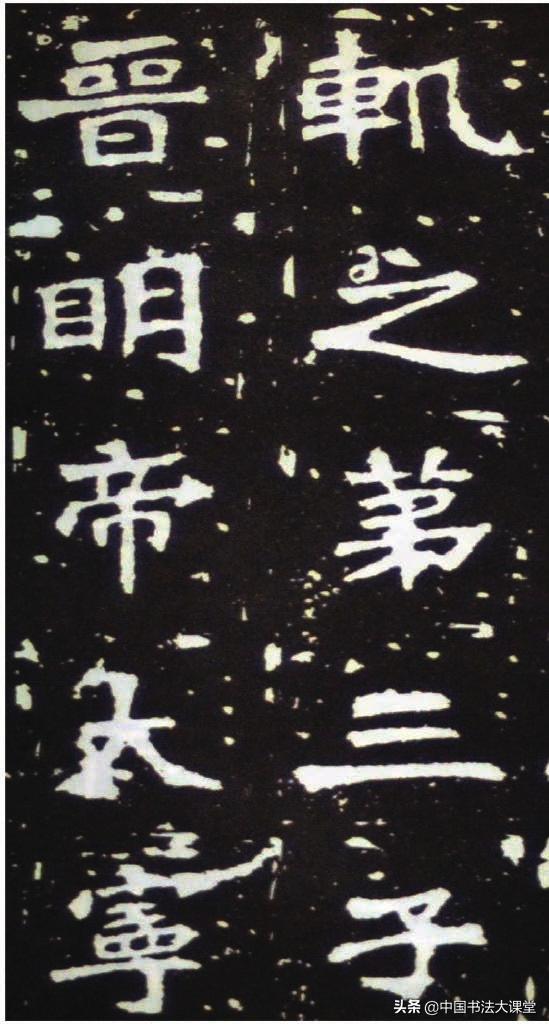 軌之第三子
晉明帝太寧
头条 @中国书法大课堂